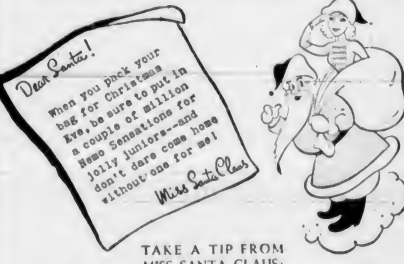 Dear Santa!
When you pack your
bag for Christmas
Eve, be sure to put in
a couple of million
Nemo Sensations for
jolly juniors--and
don't dare come home
without one for me!
Miss Santa Claus
TAKE A TIP FROM
MISS SANTA CLAUS: